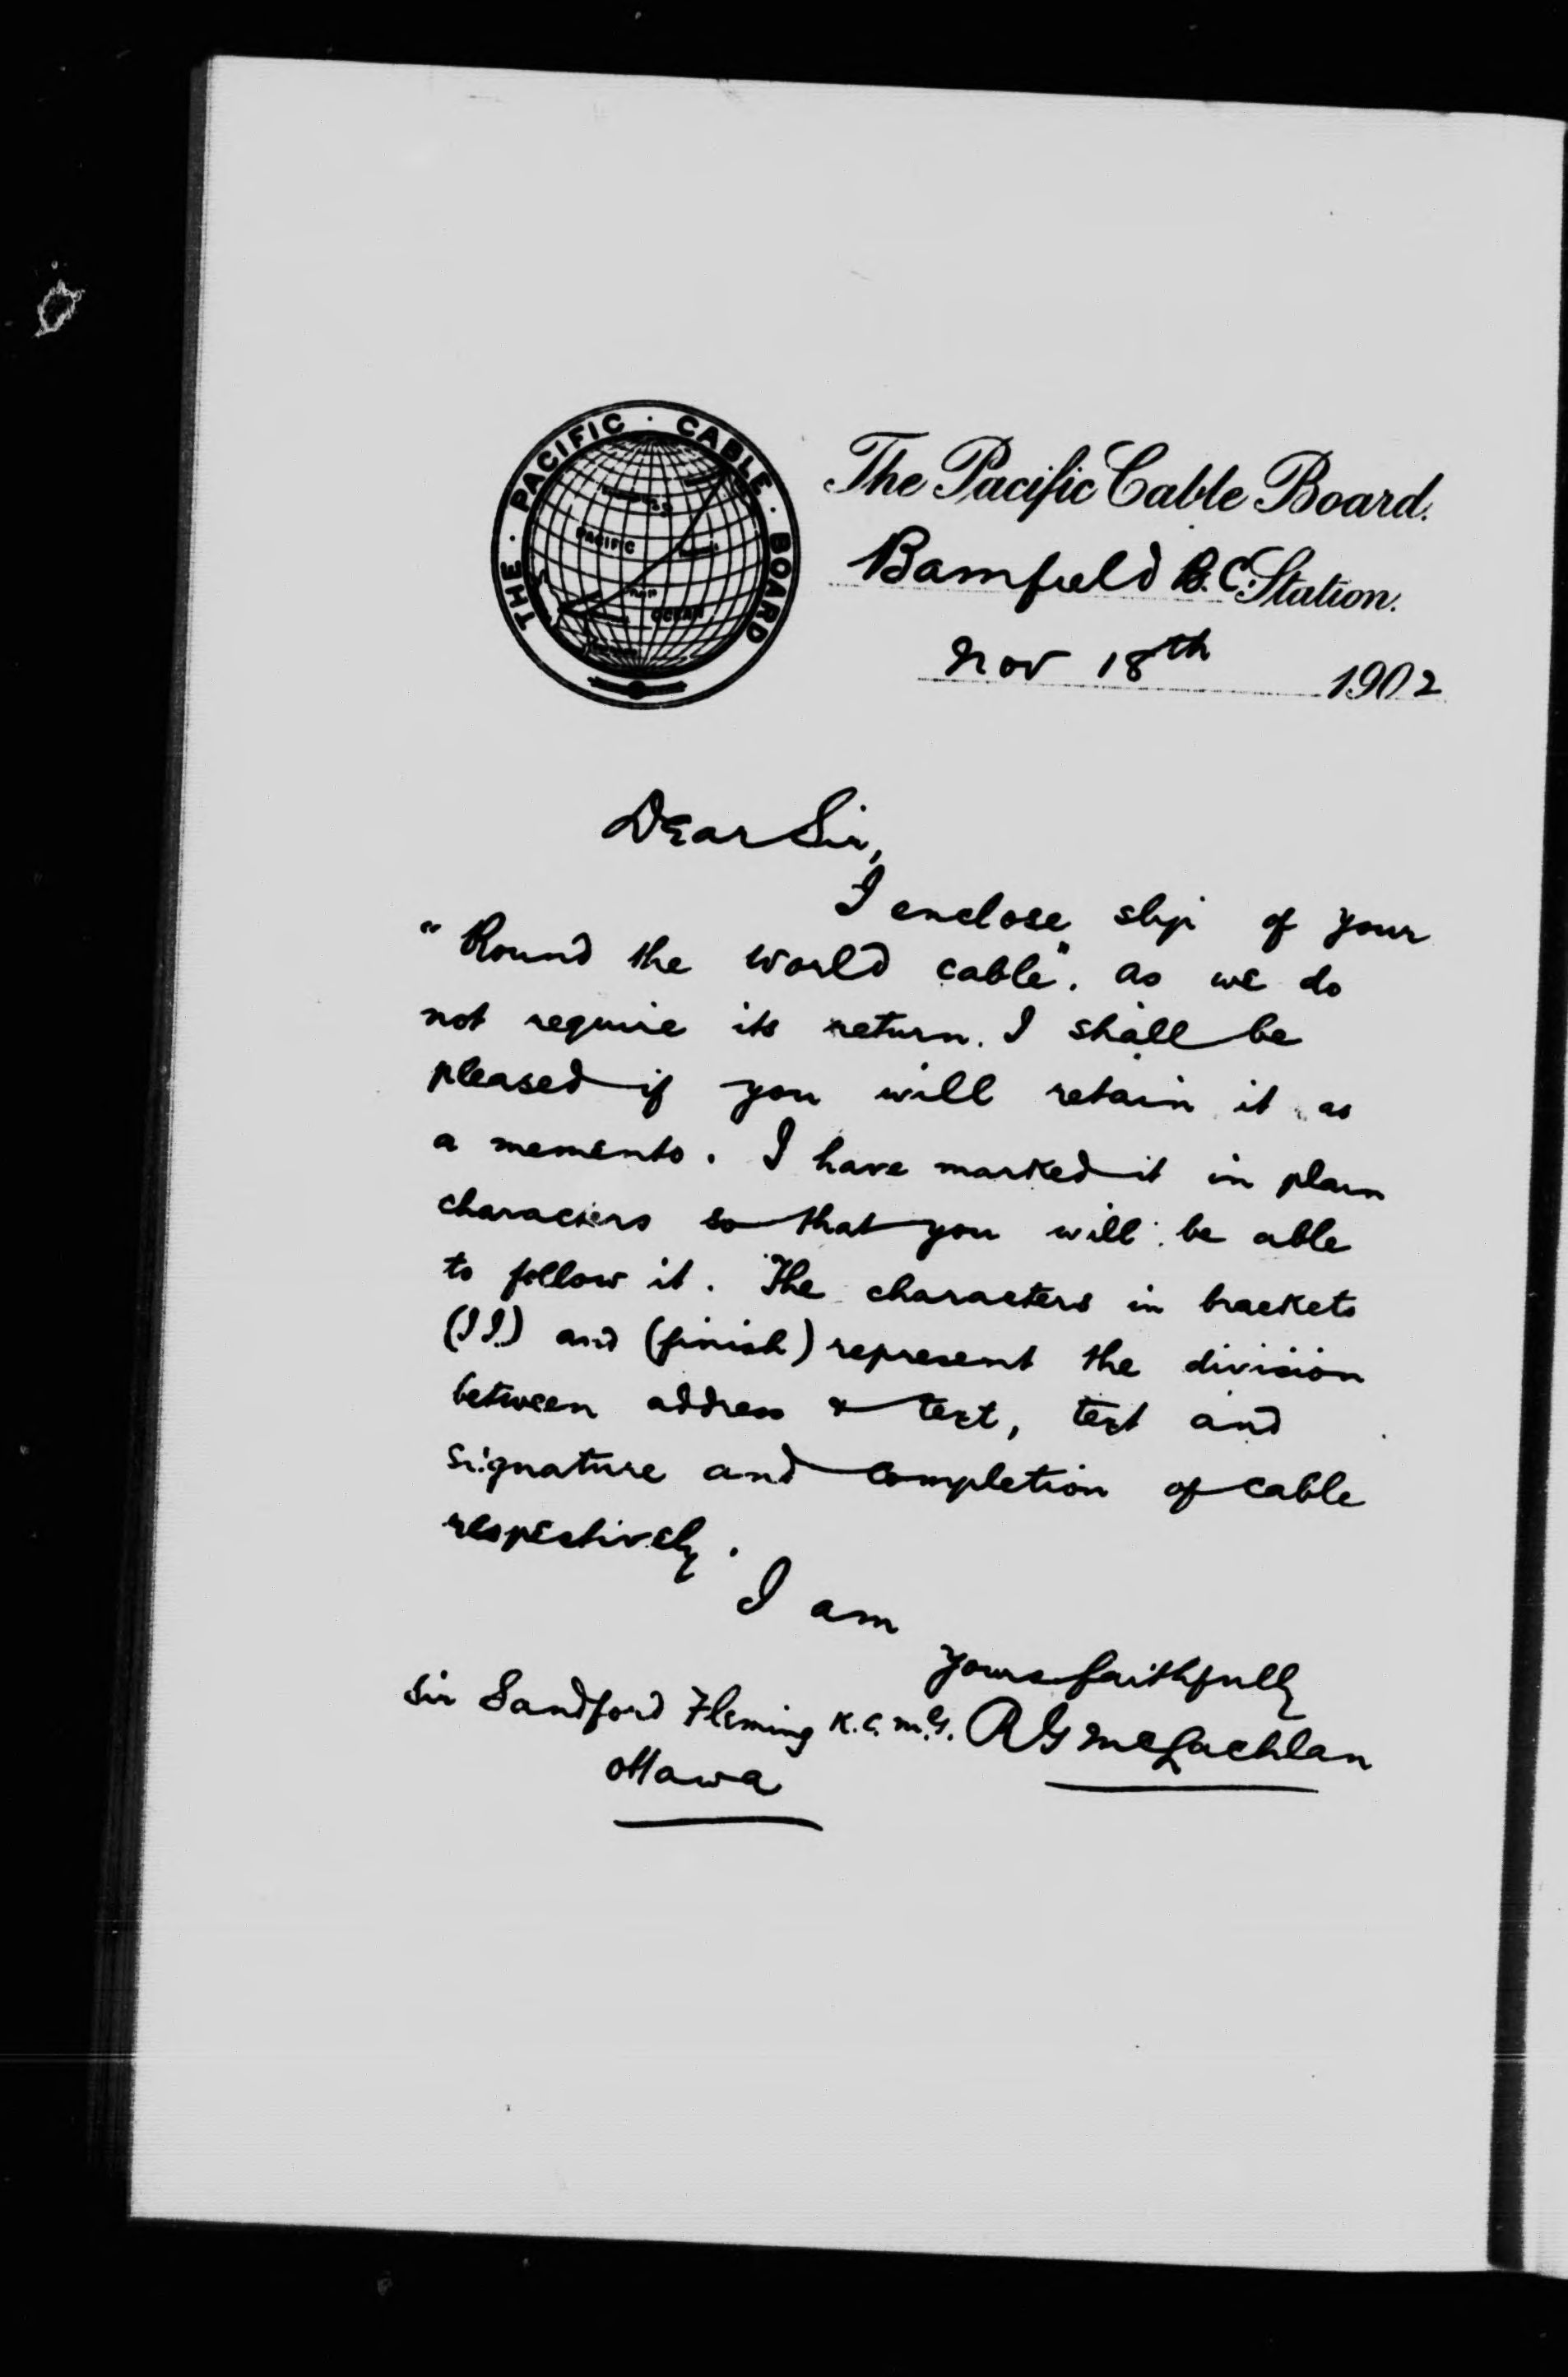 THE · PACIFIC · CABLE · BOARD
PACIFIC
OCEAN
The Pacific Cable Board.
Bamfield B.C. Station.
Nov 18th 1902
Dear Sir,
I enclose slip of your
"Round the world cable". as we do
not require its return. I shall be
pleased if you will retain it as
a memento. I have marked it in plain
characters so that you will be able
to follow it. The characters in brackets
(II) and (finish) represent the division
between address & text, text and
signature and completion of cable
respectively.
I am
yours faithfully
Sir Sandford Fleming K.C.M.G. R G McLachlan
Ottawa